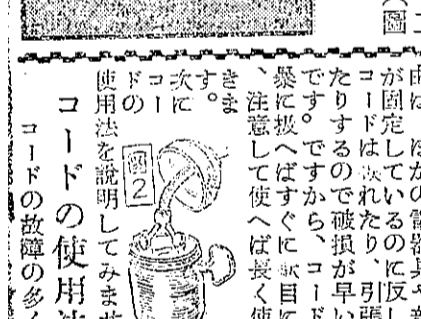 (圖
由は、ほかの電器具や
が固定しているのに反し
コードは れたり、引張
たりするので破損が早い
です。ですから、コード
に扱へばすぐに駄目に
、注意して使へば長く使
きま
す。
次に
コー
ドの
使用法を説明してみませ
圖2
コードの使用法
コードの故障の多く